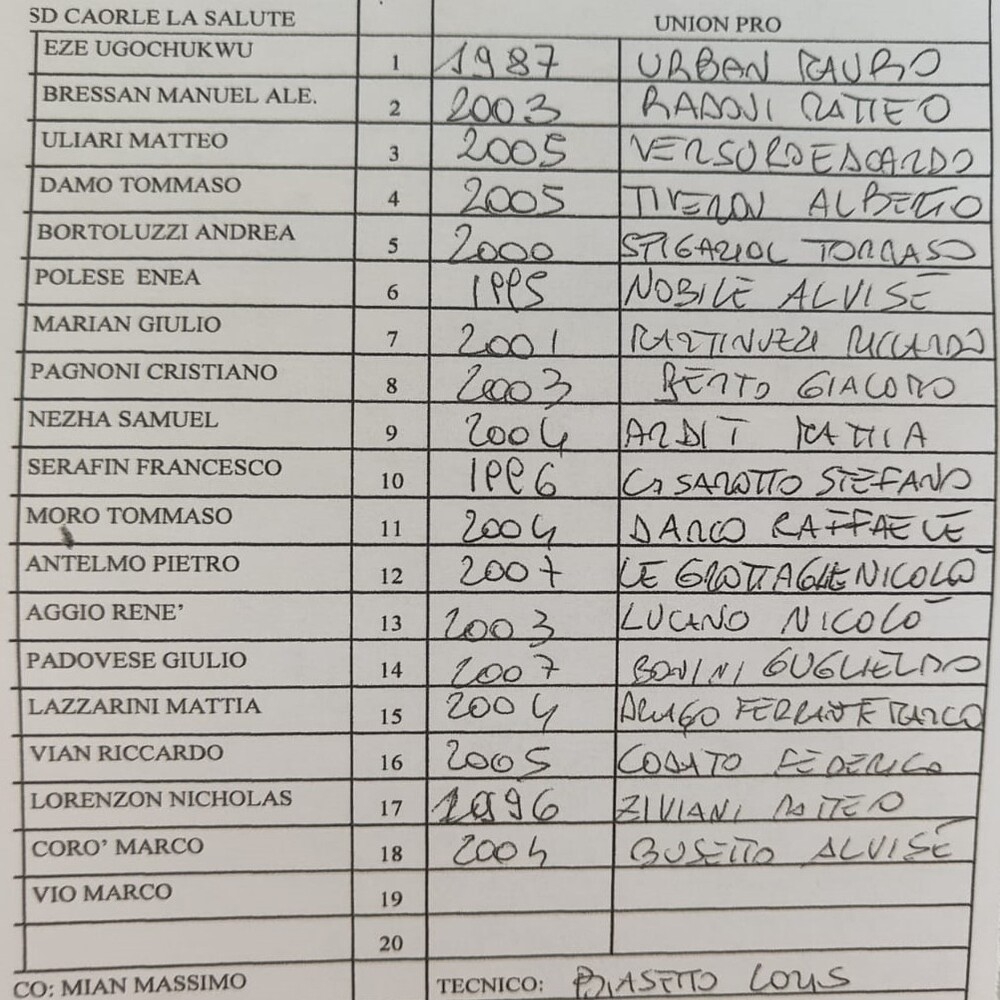 SD CAORLE LA SALUTE UNION PRO
EZE UGOCHUKWU 1 1987 URBAN MAURO
BRESSAN MANUEL ALE. 2 2003 MATTEO
ULIARI MATTEO 3 2005 VERSURO EDOARDO
DAMO TOMMASO 4 2005 TIVERON ALBERTO
BORTOLUZZI ANDREA 5 2000 SPIGARIOL TOMMASO
POLESE ENEA 6 1995 NOBILE ALVISE
MARIAN GIULIO 7 2001 MARTINUZZI RICCARDO
PAGNONI CRISTIANO 8 2003 BERTO GIACOMO
NEZHA SAMUEL 9 2004 ARDIT MATTIA
SERAFIN FRANCESCO 10 1996 CISAROTTO STEFANO
MORO TOMMASO 11 2004 DARCO RAFFAELE
ANTELMO PIETRO 12 2007 LE GROTTAGLIE NICOLÒ
AGGIO RENE’ 13 2003 LUCANO NICOLÒ
PADOVESE GIULIO 14 2007 BONINI GUGLIELMO
LAZZARINI MATTIA 15 2004 DRAGO FERRANTE MARCO
VIAN RICCARDO 16 2005 CODATO FEDERICO
LORENZON NICHOLAS 17 1996 ZIVIANI MATTEO
CORO’ MARCO 18 2004 BUSETTO ALVISE
VIO MARCO 19
20
CO: MIAN MASSIMO TECNICO: BIASETTO LORIS